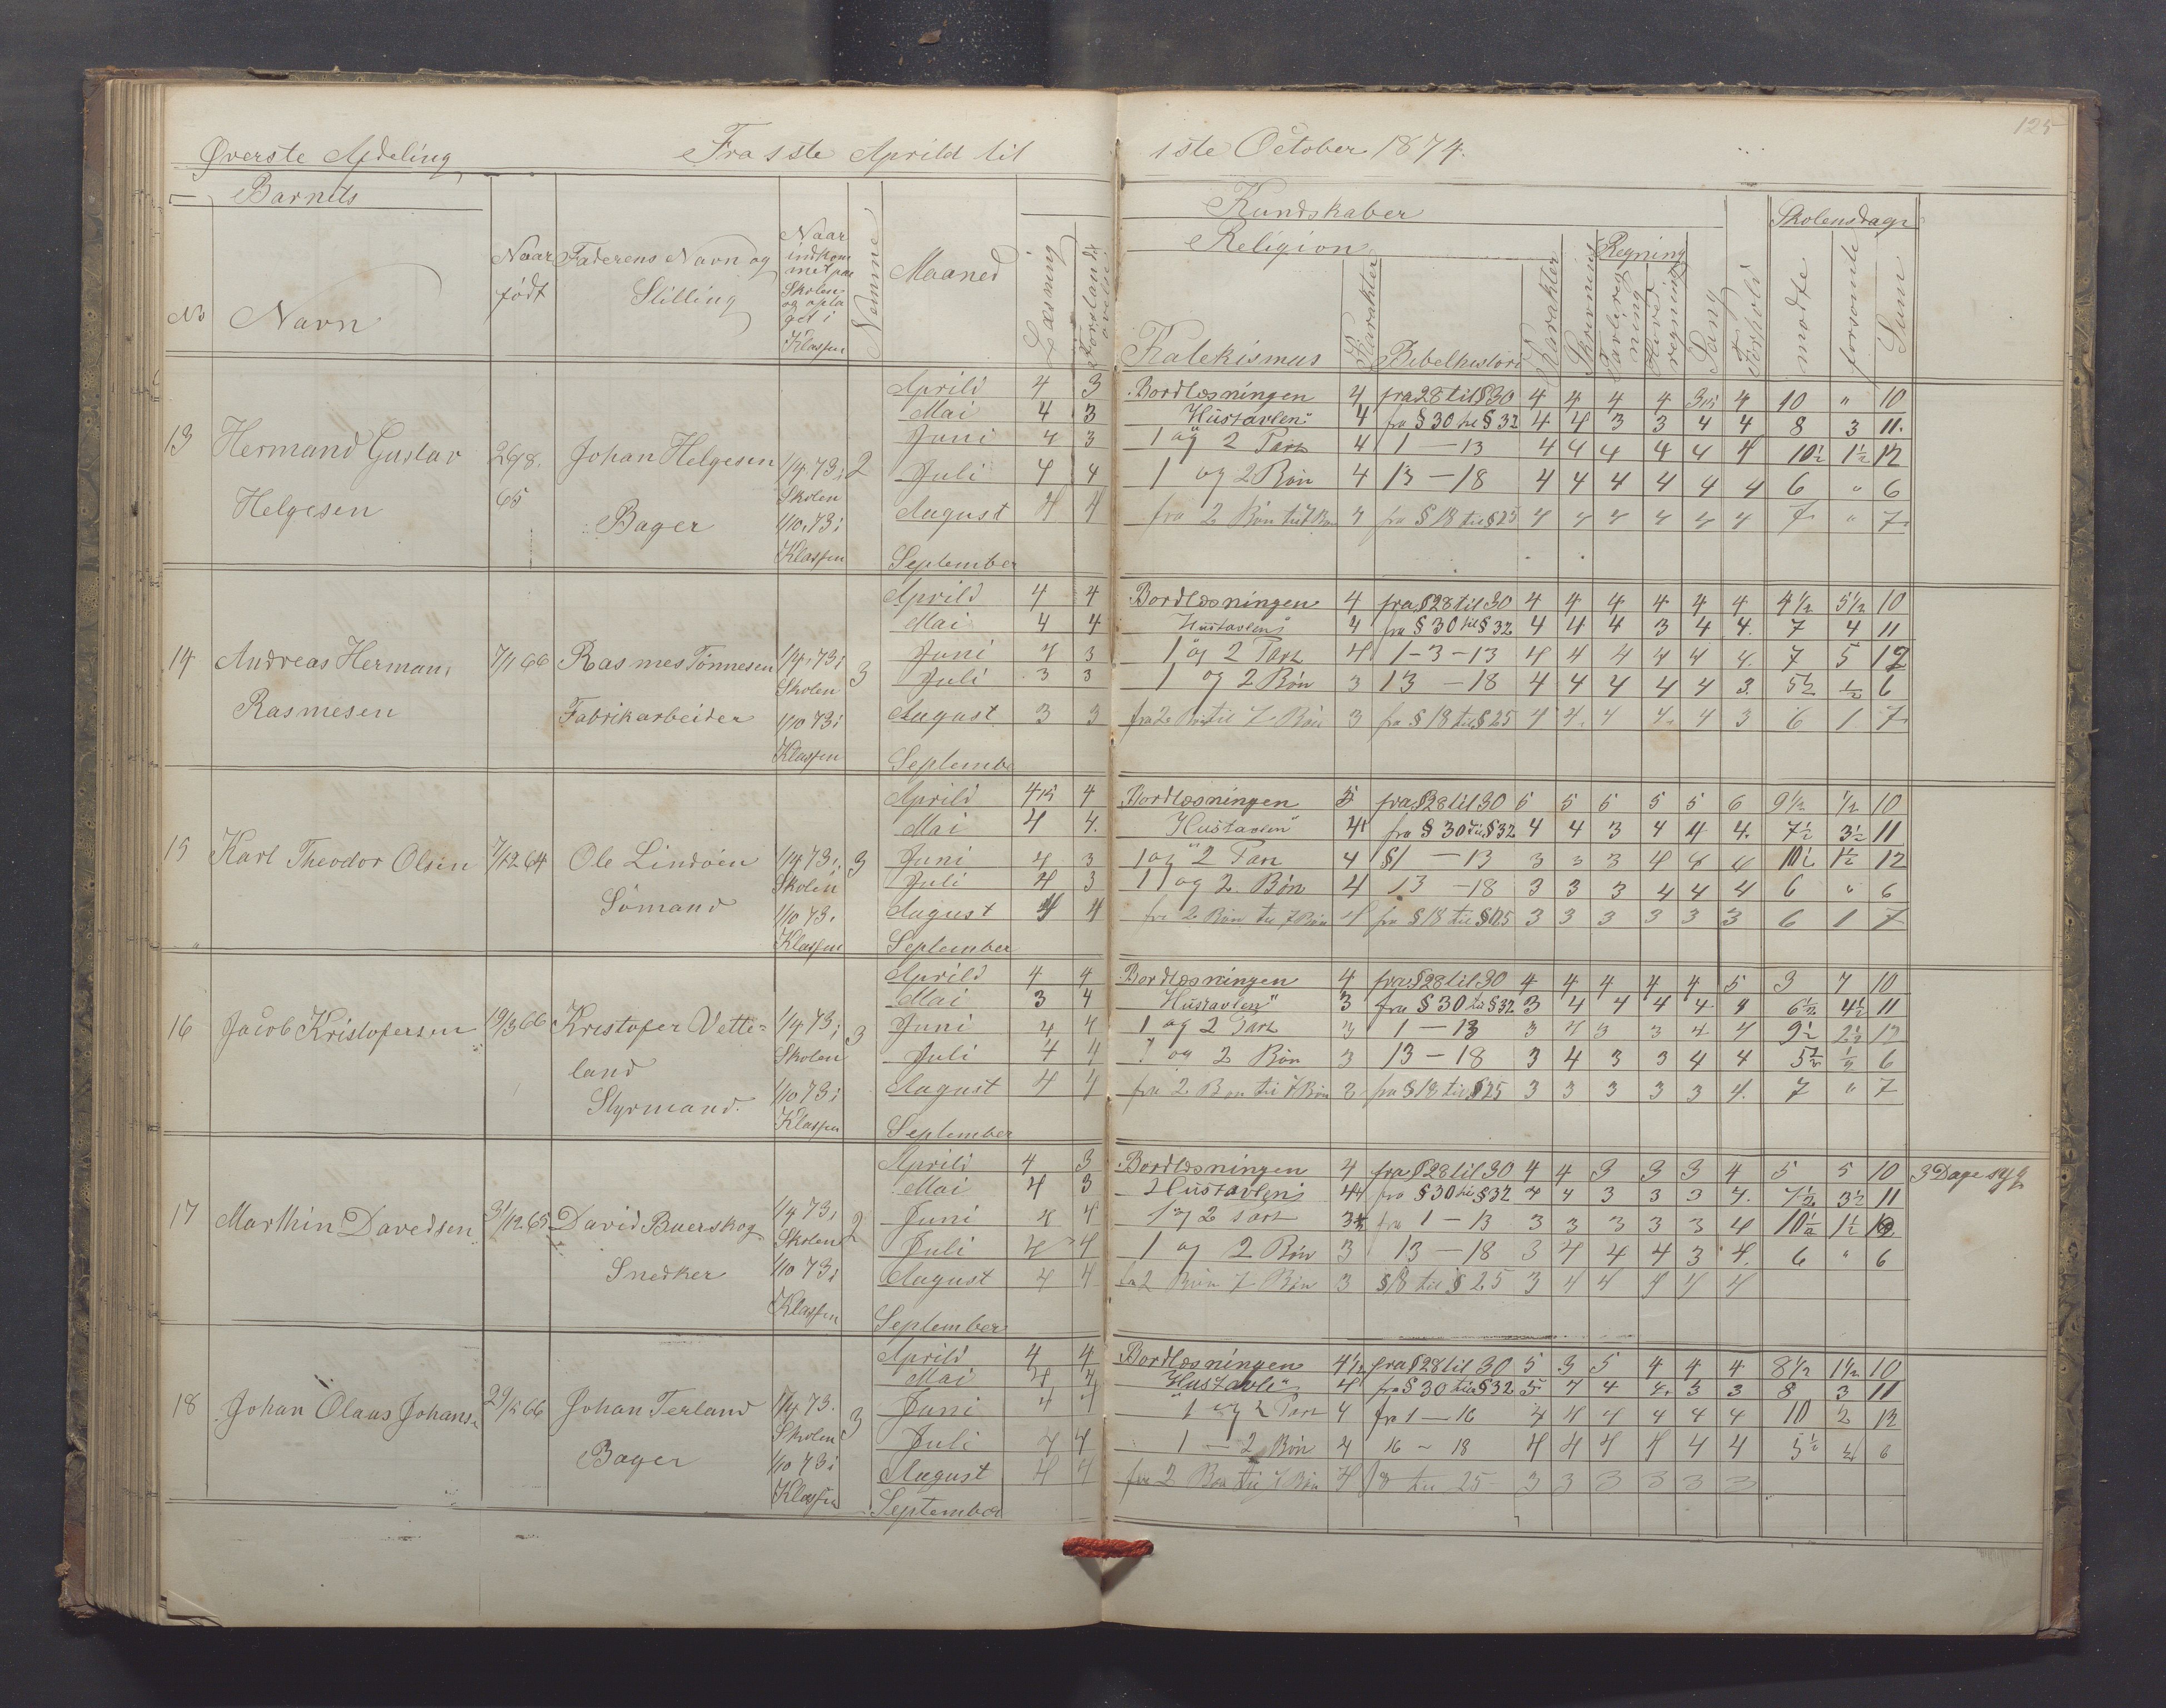 125
Øverste Afdeling Fra 1ste Aprild til 1ste October 1874.
Barnets Kundskaber Skolensdage
No Navn Naar født Faderens Navn og Stilling Naar indkommet paa Skolen og optaget i Klassen Nemne Maaned Læsning Religion Katekismus Karakter Bibelhistori Karakter Skrivning Regning Tavlregning Hovedregning Sang Forhold mødte forsømte Sum
Aprild 4 3 Bordlæsningen 4 fra 28 til § 30 4 4 4 4 4 10 " 10
Mai 4 3 Hustavlen" 4 fra § 30 til § 32 4 4 3 3 4 4 8 3 11.
13 Hermand Gustav 29/8. 65 Johan Helgesen 1/4 73 i 2 Juni 4 3 1 og 2 Part 4 1 – 13 4 4 4 4 4 4 10½ 1½ 12
Skolen Juli 4 4 1 og 2 Bøn 4 13 – 18 4 4 4 4 4 4 6 " 6
Helgesen Bager 1/10 73 i August 4 4 fra 2 Bøn til 7 Bøn 4 fra § 18 til § 25 4 4 4 4 4 4 7 " 7
Klassen September
Aprild 4 4 Bordlæsningen 4 fra § 28 til 30 4 4 4 4 4 4 4½ 5½ 10
Mai 4 4 Hustavlen" 4 fra § 30 til § 32 4 4 4 3 4 4. 7 4 11
14 Andreas Herman 7/1 66 Rasmes Tönnesen 1/4 73 i 3 Juni 4 3 1 og 2 Part 4 1-3-13 4 4 4 4 4 4. 7 5 12
Skolen Juli 3 3 1 og 2 Bøn 3 13 – 18 4 4 4 4 4 3. 5½ ½ 6
Rasmesen Fabrikarbeider 1/10 73 i August 3 3 fra 2 Bøn til 7 Bøn 3 fra § 18 til § 25 4 4. 4 4. 4 3 6 1 7
Klassen September
Aprild 4 4 Bordlæsningen 5 fra § 28 til 30 5 5 5 5 6 9½ ½ 10
Mai 4 4. Hustavlen" 4 fra § 30 til § 32 4 4 3 4 4 4. 7½ 3½ 11
15 Karl Theodor Olsen 7/12 64 Ole Lindöen 1/4 73 i 3 Juni 4 3 1 og 2 Part 4 § 1 – 13 3 3 3 4 4 4 10½ 1½ 12
Skolen Juli 4 3 1 og 2 Bøn 4 13 – 18 3 3 3 4 4 4 6 " 6
Sömand 1/10 73. August 4 4 fra 2 Bøn til 7 Bøn 4 fra § 18 til § 25 3 3 3 3 3 3 6 1 7
Klassen September
Aprild 4 4 Bordlæsningen 4 fra § 28 til 30 4 4 4 4 4 5 3 7 10
Mai 3 4 Hustavlen" 3 fra § 30 til § 32 3 4 4 4 4. 4 6½ 4½ 11
16 Jacob Kristofersen 19/3 66 Kristofer Vette= 1/4 73 i 3 Juni 4 4 1 og 2 Part 3 1 – 13 3 4 3 3 4 4 9½ 2½ 12
land Skolen Juli 4 4 1 og 2 Bøn 3 13 – 18 3 4 3 3 4 4 5½ ½ 6
Styrmand. 1/10 73 i August 4 4 fra 2 Bøn til 7 Bøn 3 fra § 18 til § 25 3 3 3 3 3 4. 7 " 7
Klassen September
Aprild 4 3 Bordlæsningen 4 fra § 28 til 30 4 4 3 3 3 4 5 5 10 3 Dage syg
Mai 4 3 Hustavlen fra § 30 til § 32 4 4 3 3 3 4. 7½ 3½ 11
17 Marthin Davedsen 31/12 65 David Buerskog 1/4 73 i 2 Juni 4 4 1 og 2 Part fra 1 – 13 3 3 3 3 3 4 10½ 1½
Skolen Juli 4 4 1 og 2 Bøn 3 13 – 18 3 4 4 4 3 4. 6 " 6
Snedker 1/10 73 i August 4 4 fra 2 Bøn 7 Bøn 3 § 18 til § 25 3 4 4 4 4 4
Klassen September
Aprild 4 4 Bordlæsningen 4½ fra § 28 til 30 5 3 5 4 4 4 8½ 1½ 10
Mai 4 4 Hustavle" 4 fra § 30 til § 32 5 4 4 4. 3 3 8 3 11
18 Johan Olaus Johans 66 Johan Terland 1/4 73. 3 Juni 4 4 1 og 2 Part 4 fra 1 – 16 4 4 4 4 4 4 10 12
Skolen Juli 4 4 1 – 2 Bøn 4 16 – 18 4 4 4 4 4 4 5½ 6
Bager 1/10 73 i August 4 4 fra 2 Bøn til 7 Bøn 4 18 til 25 3 3 3 3 3 3
Klassen September